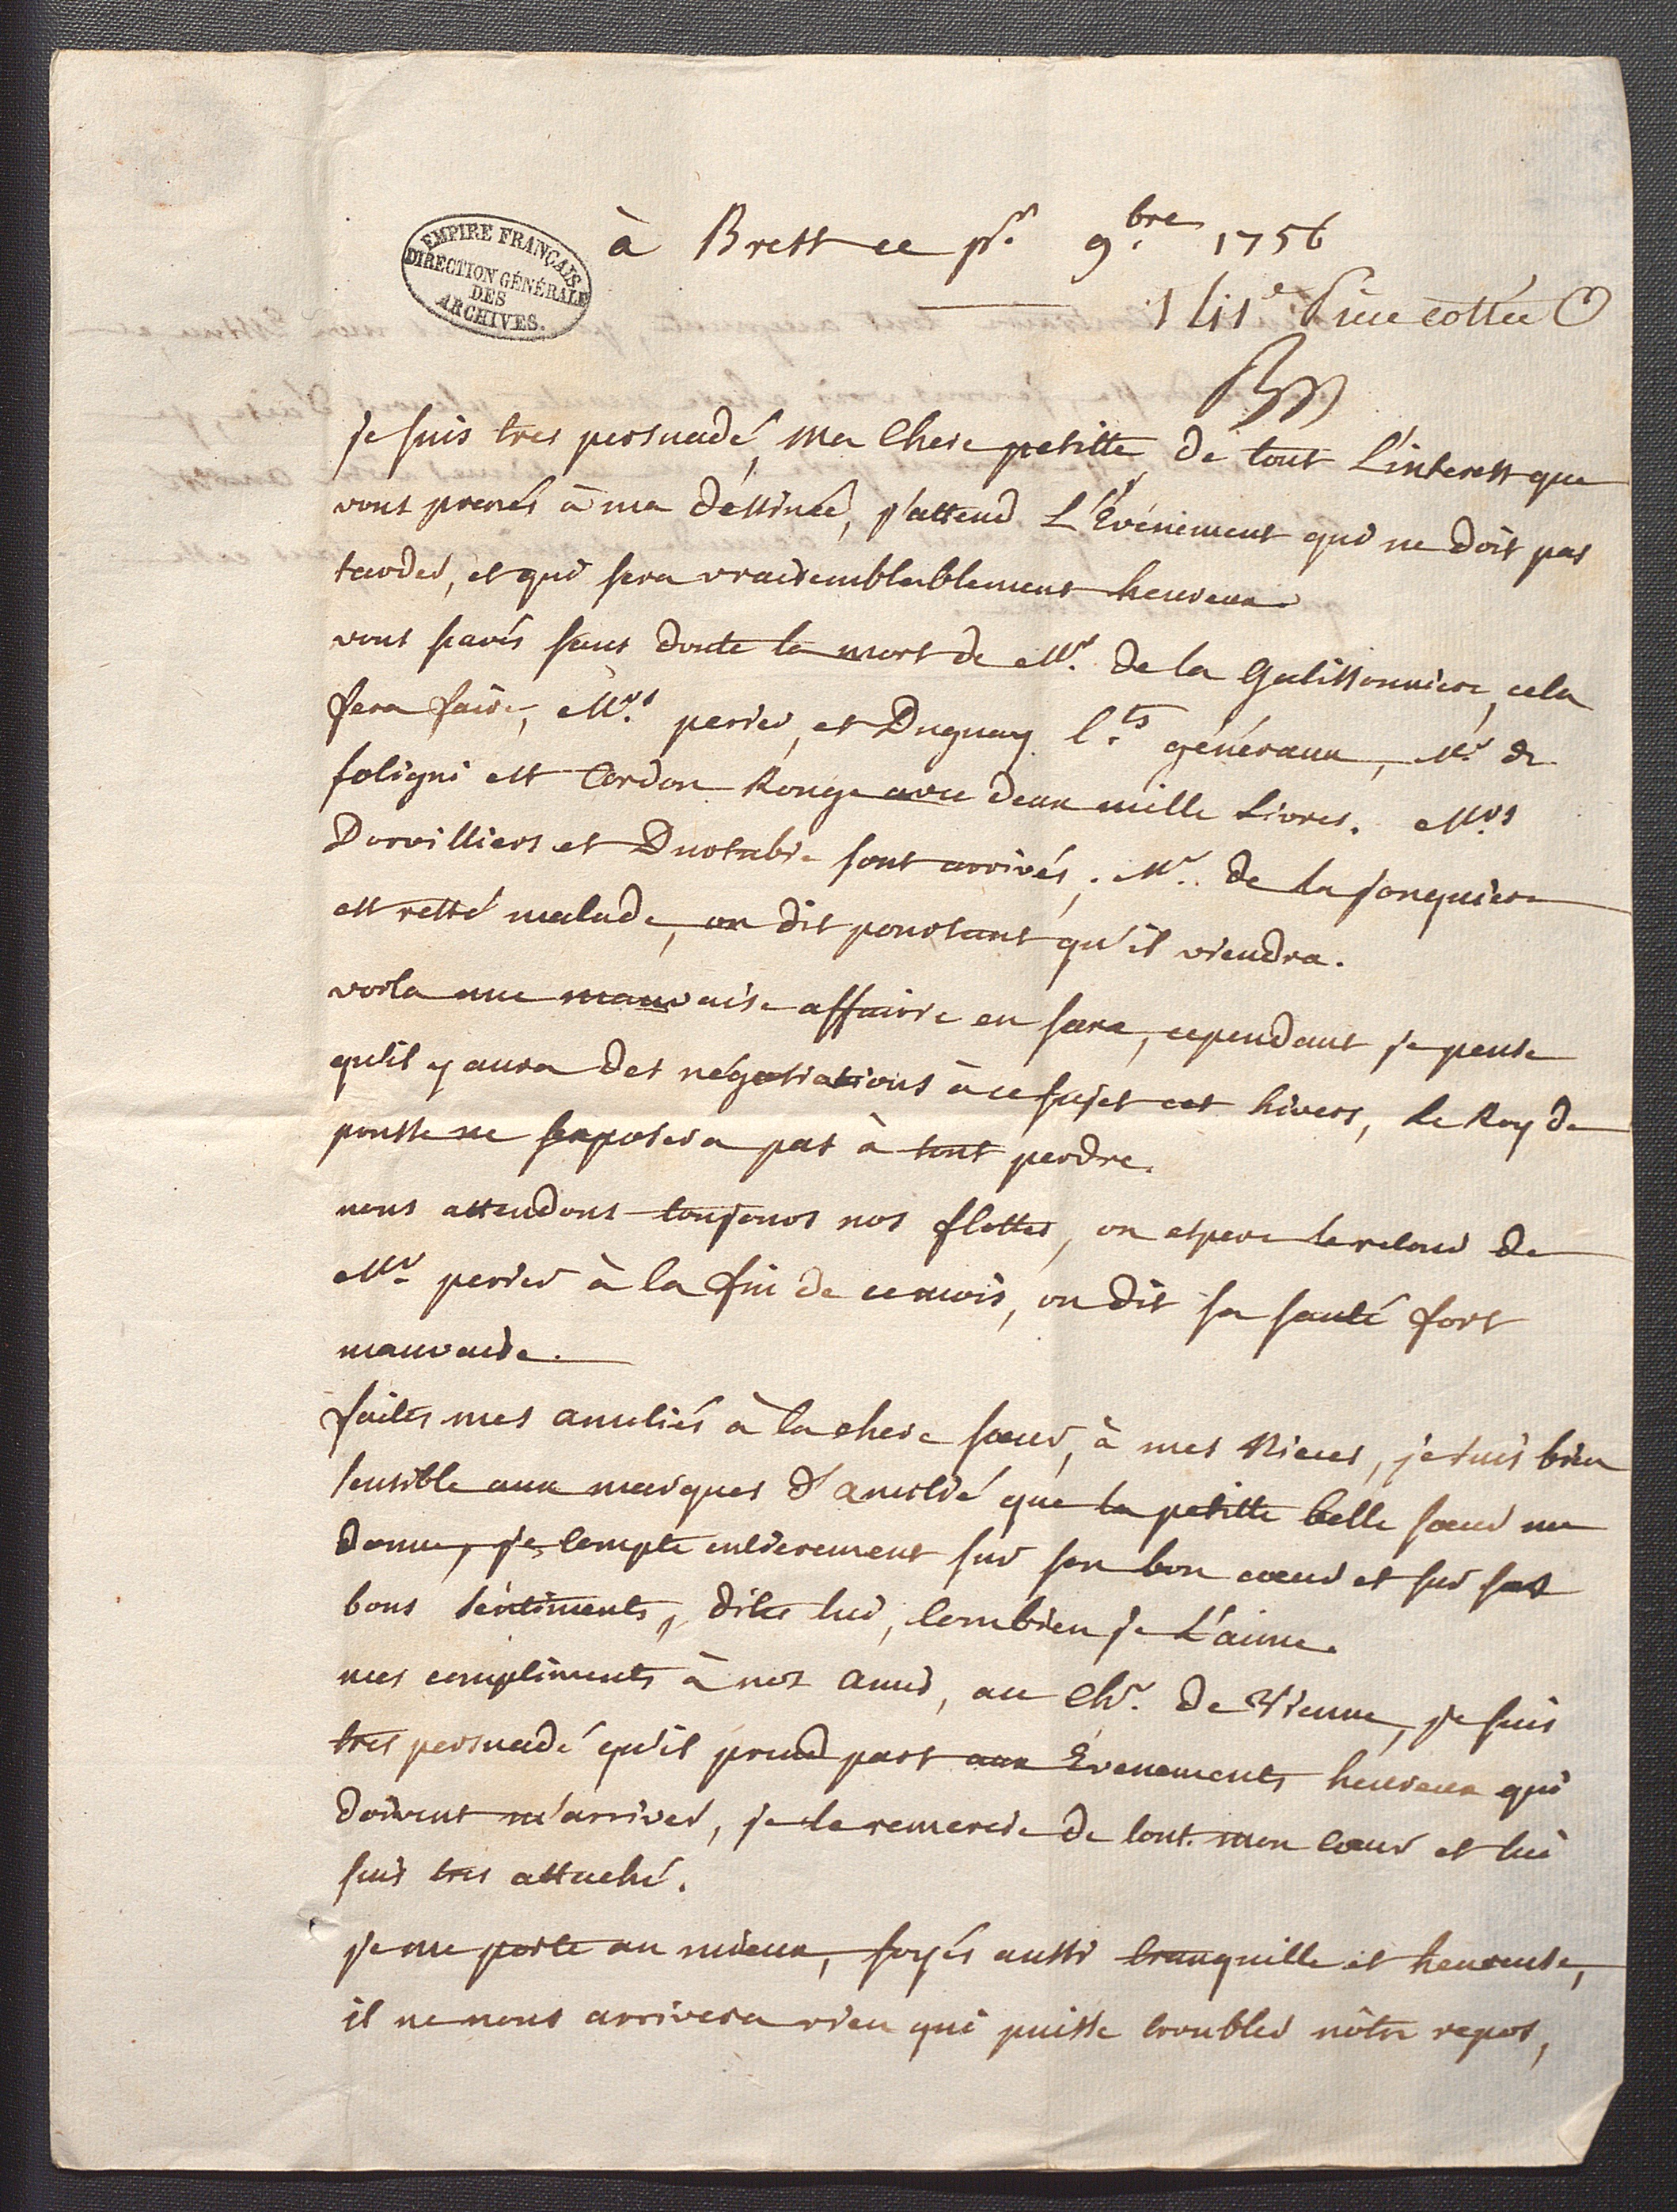 EMPIRE FRANÇAIS
DIRECTION GÉNÉRALE
DES
ARCHIVES.
à Brest ce pr. 9.bre 1756
141e Piece cottée
je suis tres persuadé, ma Chere petitte, de tout L'interest que
vous prenés à ma déstinée, j'attend L'Événement qui ne doit pas
tarder, et qui sera vraisemblablement heureux.
vous savés sans doute la mort de Mr. de la Galissonniere, cela
fera faire, Mrs. perier, et Duguay l.ts généraux, Mr. de
foligni est Cordon Rouge avec deux mille Livres. Mrs
Dorvilliers et Durtubie sont arrivés, Mr. de la jonquiere
est resté malade, on dit pourtant qu'il viendra.
voila une mauvaise affaire en saxe, cependant je pense
qu'il y aura des négotiations à ce sujet cet hivers, Le Roy de
prusse ne s'exposera pas à tout perdre.
nous attendons toujours nos flottes, on espere le retour de
Mr. perier à la fin de ce mois, on dit sa santé fort
mauvaise.
faites mes amitiés à la chere soeur, à mes Nieces, je suis bien
sensible aux marques d'amitié que la petitte belle soeur me
donne, je compte entierement sur son bon coeur et sur ses
bons séntiments, dites lui, Combien je L'aime.
mes compliments à nos amis, au Chr. de Vienne, je suis
tres persuadé qu'il prend part aux Évenements heureux qui
doivent m'arriver, je le remercie de tout mon Coeur et lui
suis tres attaché.
je me porte au mieux, soyés aussi tranquille et heureuse,
il ne nous arrivera rien qui puisse troubler nôtre repos,